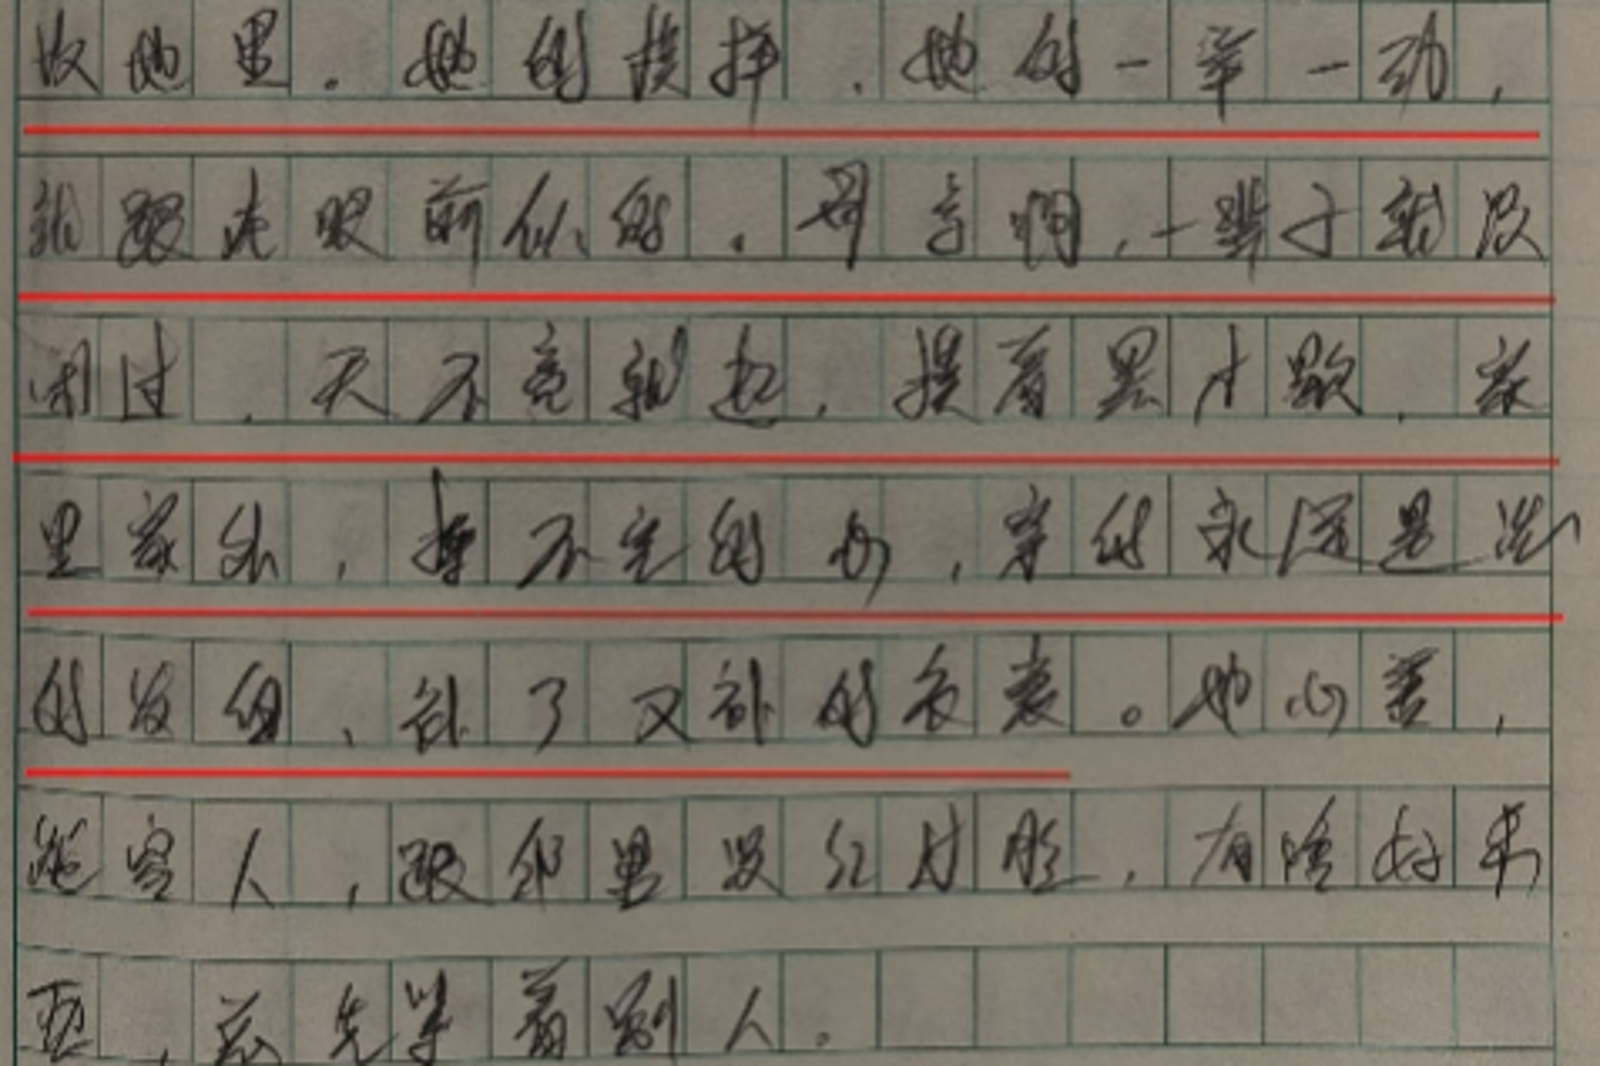 故地里,她的模样,她的一举一动,
就跟在眼前似的。母亲啊,一辈子就没
闲过,天不亮就起,摸着黑才歇,家
里家外,操不完的心,穿的永远是洗
的发白,补了又补的衣裳。她心善,
能容人,跟邻里没红过脸,有啥好东
西,总先紧着别人。